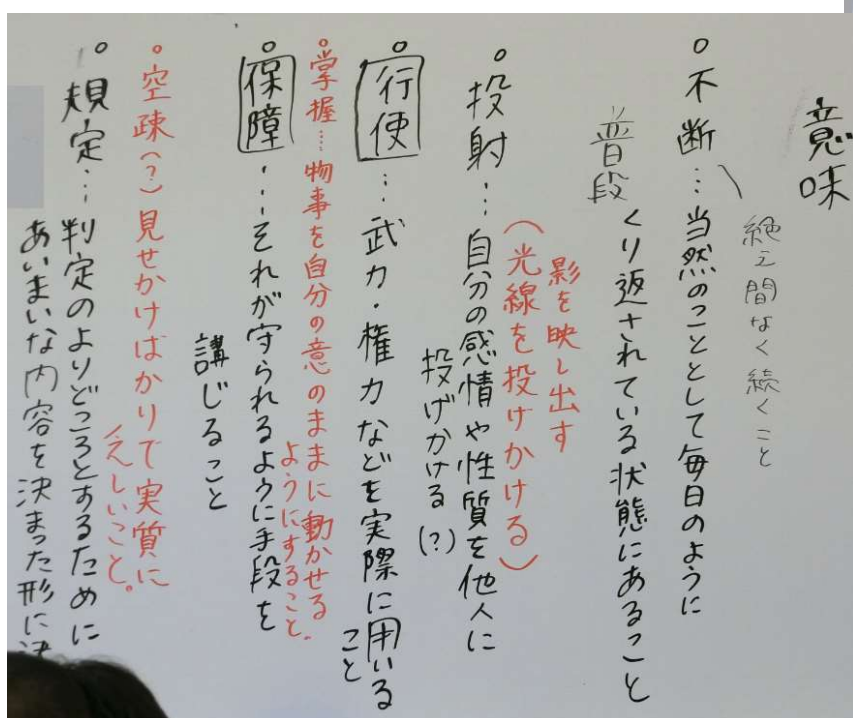 意味
絶え間なく続くこと
○不断…当然のこととして毎日のように
普段
くり返されている状態にあること
影を映し出す
(光線を投げかける)
○投射…自分の感情や性質を他人に
投げかける(?)
○行使…武力・権力などを実際に用いる
こと
○掌握…物事を自分の意のままに動かせる
ようにすること.
○保障…それが守られるように手段を
講じること
○空疎(?)見せかけばかりで実質に
えしいこと。
○規定…判定のよりどころとするために
あいまいな内容を決まった形に